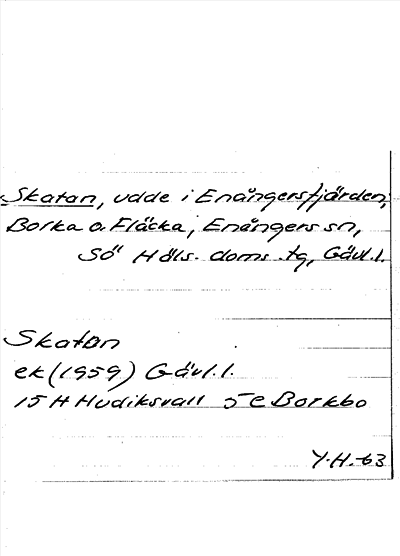 Skatan, udde i Enångersfjärden,
Borka o. Fläcka, Enångers sn,
Sö Häls. doms.tg, Gävl.l.
Skatan
ek (1959) Gävl.l.
15 H Hudiksvall 5 e Borkbo
Y.H.-63